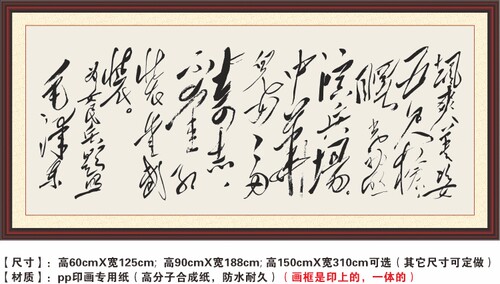 颯爽英姿
五尺槍，
曙光初照
演兵場。
中華
兒女多
奇志，
不愛紅
裝愛武
裝。
为女民兵題照
毛澤東
【尺寸】：高60cmX宽125cm; 高90cmX宽188cm; 高150cmX宽310cm可选（其它尺寸可定做）
【材质】：pp印画专用纸（高分子合成纸，防水耐久）（画框是印上的，一体的）